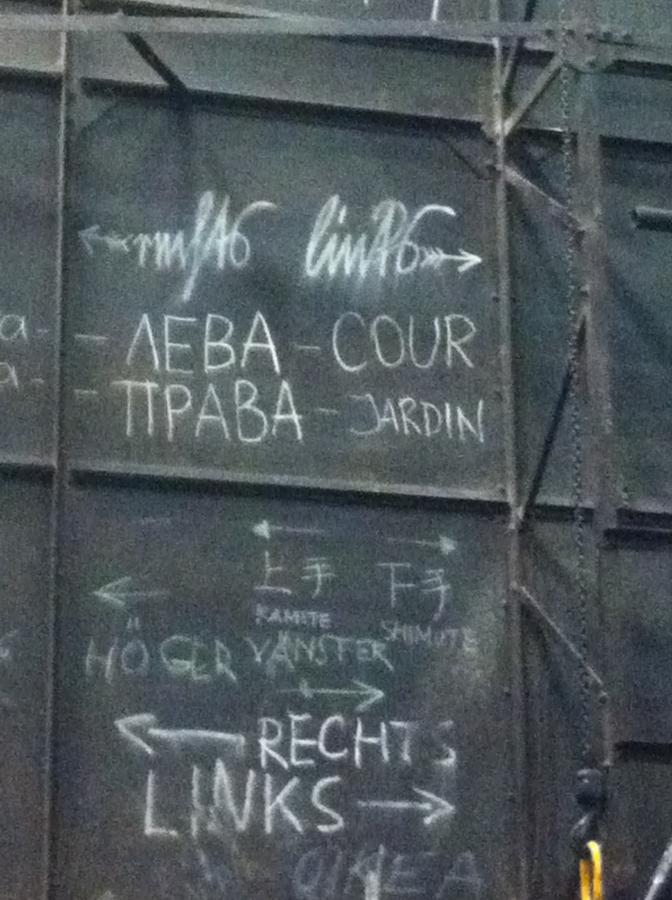 ← rechts links →
- ЛЕВА - COUR
- ПРАВА - JARDIN
← →
上手 下手
KAMITE SHIMOTE
← HÖGER VÄNSTER →
← RECHTS
LINKS →
OIKEA